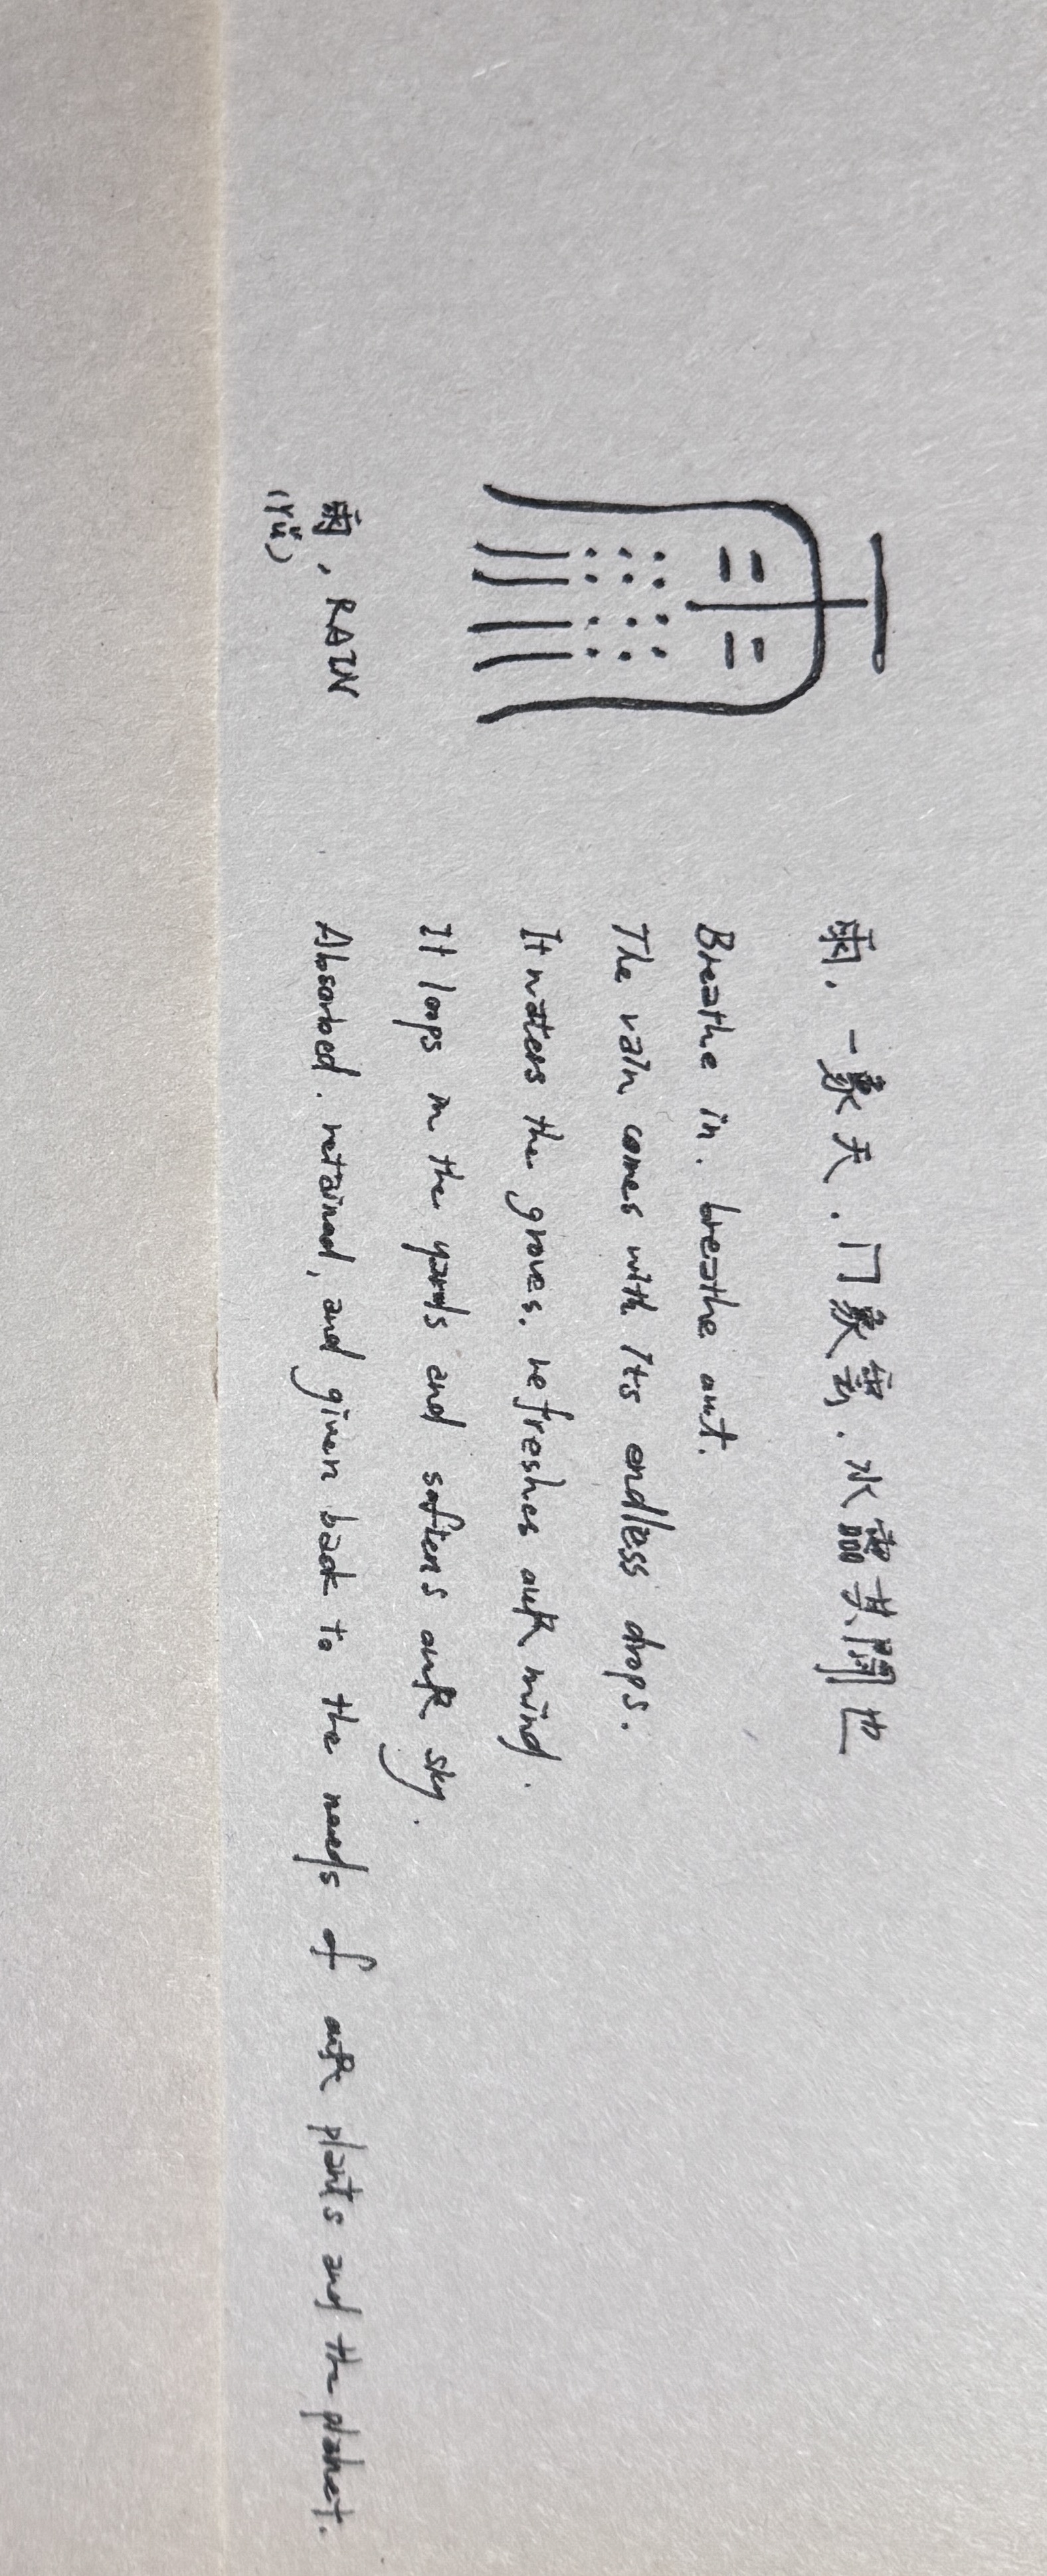 雨, 一象天, 冂象雲, 水霝其間也
Breathe in, breathe out.
The rain comes with its endless drops.
It waters the groves, refreshes our mind.
It loops in the yards and softens our sky.
Absorbed, retained, and given back to the needs of our plants and the planet.
雨, RAIN
(Yǔ)